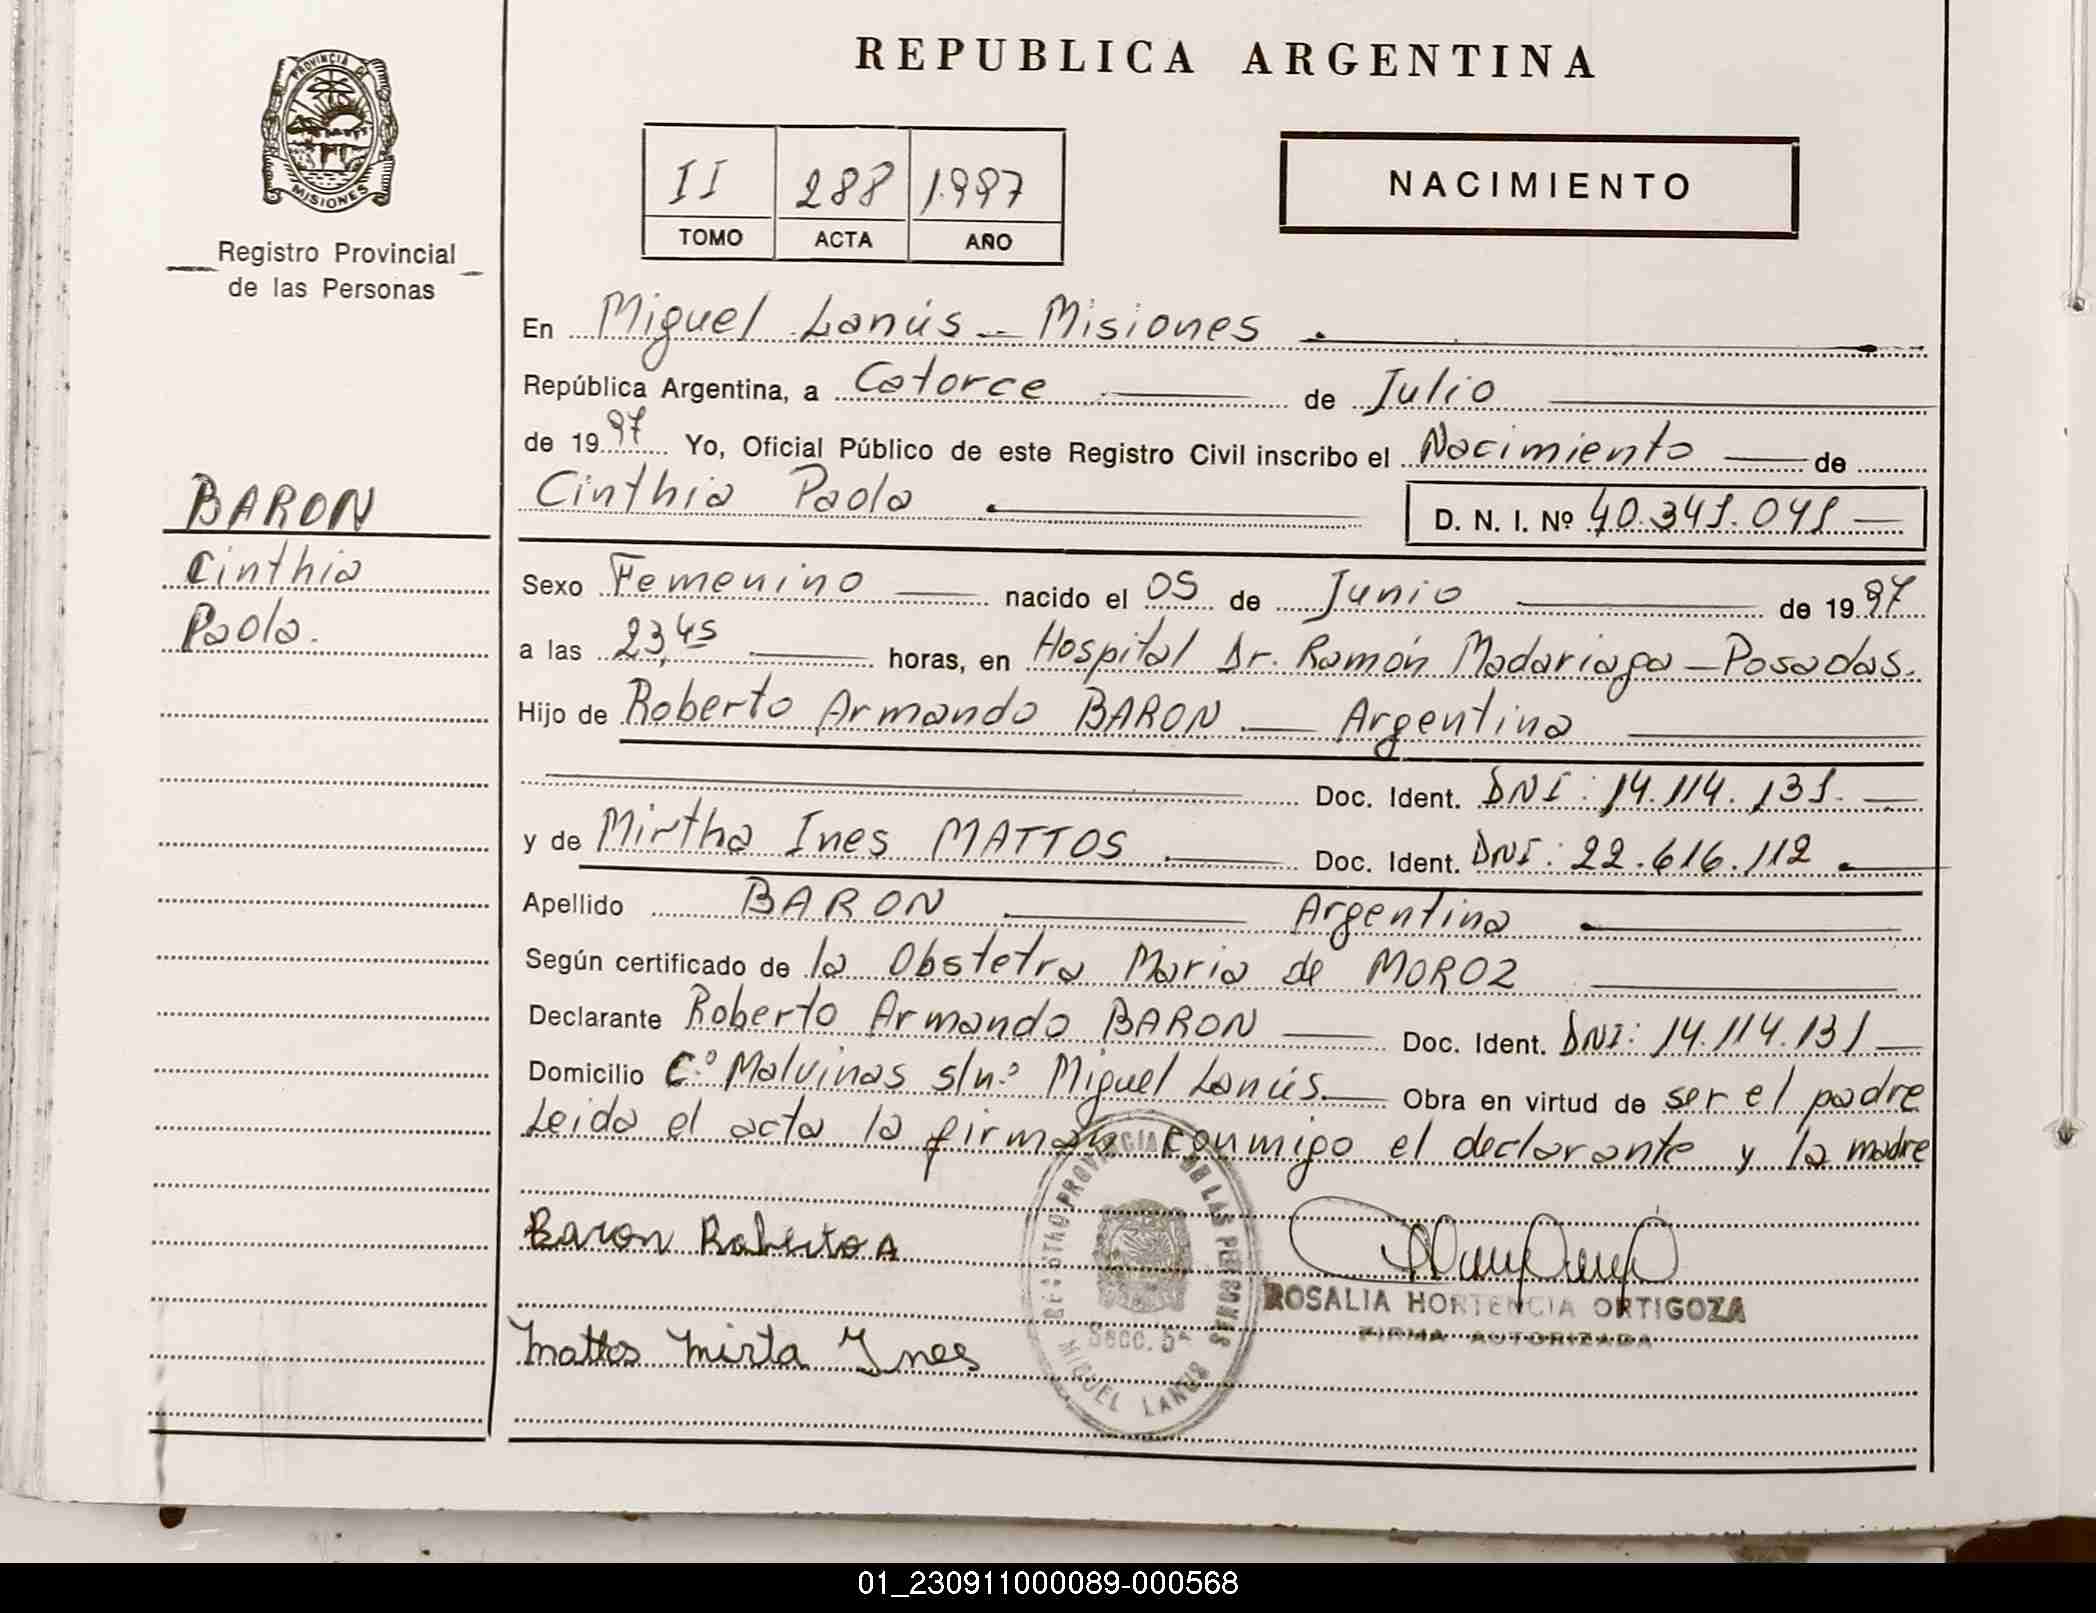 REPUBLICA ARGENTINA
PROVINCIA DE
MISIONES
Registro Provincial
de las Personas
II 288 1.997
TOMO ACTA AÑO
NACIMIENTO
En Miguel Lanús - Misiones
República Argentina, a Catorce de Julio
de 1997 Yo, Oficial Público de este Registro Civil inscribo el Nacimiento de
Cinthia Paola D. N. I. Nº 40.341.041
BARON
Cinthia
Paola.
Sexo Femenino nacido el 05 de Junio de 1997
a las 23,45 horas, en Hospital Dr. Ramón Madariaga - Posadas.
Hijo de Roberto Armando BARON - Argentina
Doc. Ident. DNI: 14.114.131.
y de Mirtha Ines MATTOS Doc. Ident. DNI: 22.616.112.
Apellido BARON Argentina
Según certificado de la Obstetra Maria de MOROZ
Declarante Roberto Armando BARON Doc. Ident. DNI: 14.114.131
Domicilio Cº Malvinas s/nº Miguel Lanús. Obra en virtud de ser el padre
Leida el acta la firman conmigo el declarante y la madre
Baron Roberto A
Mattos Mirta Ines
REGISTRO PROVINCIAL DE LAS PERSONAS
Secc. 5ª
MIGUEL LANUS
ROSALIA HORTENCIA ORTIGOZA
FIRMA AUTORIZADA
01_230911000089-000568